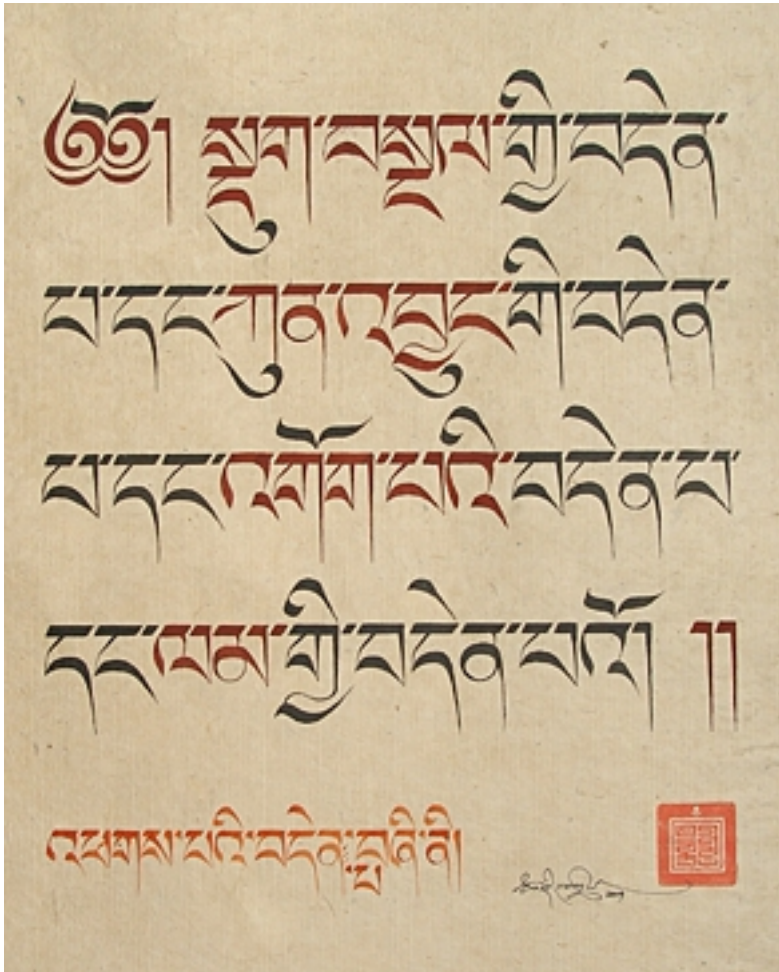 ༄༅། སྡུག་བསྔལ་གྱི་བདེན་
པ་དང་ཀུན་འབྱུང་གི་བདེན་
པ་དང་འགོག་པའི་བདེན་པ་
དང་ལམ་གྱི་བདེན་པའོ། །།
འཕགས་པའི་བདེན་པ་བཞི་ནི།